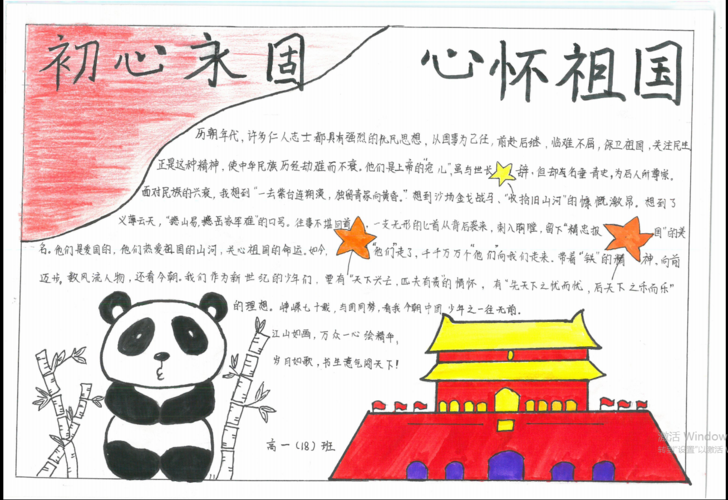 初心永固 心怀祖国
历朝年代，许多仁人志士都具有强烈的忧民思想，以国事为己任，前赴后继，临难不屈，保卫祖国，关注民生
正是这种精神，使中华民族历经劫难而不衰。他们是上帝的"宠儿"虽与世长辞，但却有名垂青史，为后人所尊崇。
面对民族的兴衰，我想到"一去紫台连朔漠，独留青冢向黄昏。"想到沙场金戈战马、"收拾旧山河"的慷慨激昂。想到了
义薄云天，"撼山易，撼岳家军难"的口号。往事不堪回首，一支无形的匕首从背后袭来，刺入胸膛，留下"精忠报国"的美
名。他们是爱国的，他们热爱祖国的山河，关心祖国的命运。如今，"他们"走了，千千万万个"他们"向我们走来。带着"铁"的精神，向前
迈步，数风流人物，还看今朝。我们作为新世纪的少年们，要有"天下兴亡，匹夫有责"的情怀，有"先天下之忧而忧，后天下之乐而乐"
的理想。峥嵘七十载，与国同梦，看我今朝中国少年之一往无前。
江山如画，万众一心绘精华，
岁月如歌，书生意气闯天下！
高一（18）班
激活 Window